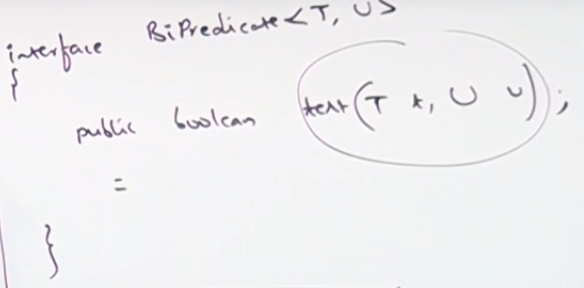 interface BiPredicate<T, U>
{
public boolean test(T t, U u);
=
}